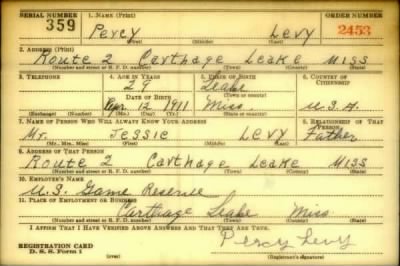 SERIAL NUMBER 1. NAME (Print) ORDER NUMBER
359 Percy Levy 2453
(First) (Middle) (Last)
2. ADDRESS (Print)
Route 2 Carthage Leake Miss
(Number and street or R. F. D. number) (Town) (County) (State)
3. TELEPHONE 4. AGE IN YEARS 5. PLACE OF BIRTH 6. COUNTRY OF CITIZENSHIP
29 Leake
DATE OF BIRTH (Town or county)
Apr. 12 1911 Miss U.S.A.
(Exchange) (Number) (Mo.) (Day) (Yr.) (State or country)
7. NAME OF PERSON WHO WILL ALWAYS KNOW YOUR ADDRESS 8. RELATIONSHIP OF THAT PERSON
Mr. Jessie Levy Father
(Mr., Mrs., Miss) (First) (Middle) (Last)
9. ADDRESS OF THAT PERSON
Route 2 Carthage Leake Miss
(Number and street or R. F. D. number) (Town) (County) (State)
10. EMPLOYER'S NAME
U.S. Game Reserve
11. PLACE OF EMPLOYMENT OR BUSINESS
Carthage Leake Miss
(Number and street or R. F. D. number) (Town) (County) (State)
I AFFIRM THAT I HAVE VERIFIED ABOVE ANSWERS AND THAT THEY ARE TRUE.
Percy Levy
REGISTRATION CARD
D. S. S. Form 1 (over) (Registrant's signature)